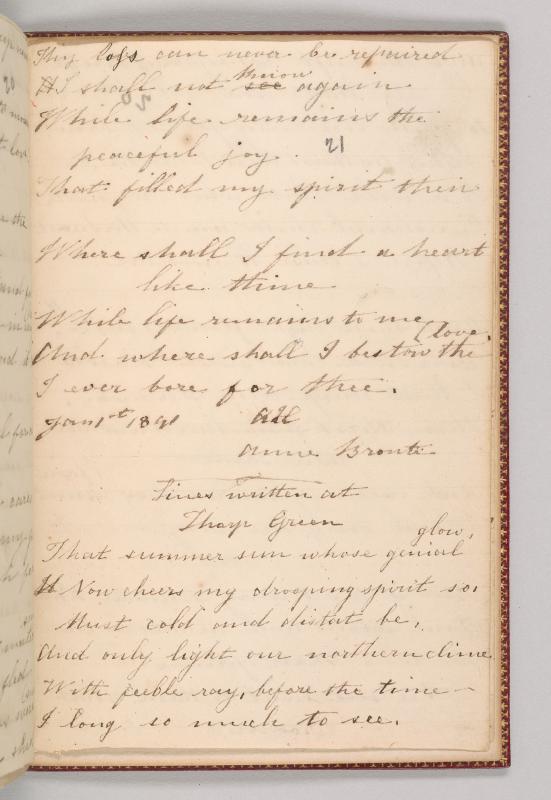 Thy loss can never be repaired
I shall not see know again
20
While life remains the
peaceful joy.
21
That filled my spirit then
Where shall I find a heart
like thine
While life remains to me
And where shall I bestow the [love
I ever bore for thee.
Jan 1st 1841
Anne Bronte
Lines written at
Thorp Green
That summer sun whose genial glow,
Now cheers my drooping spirit so,
Must cold and distat be,
And only light our northern clime
With feeble ray, before the time—
I long so much to see.